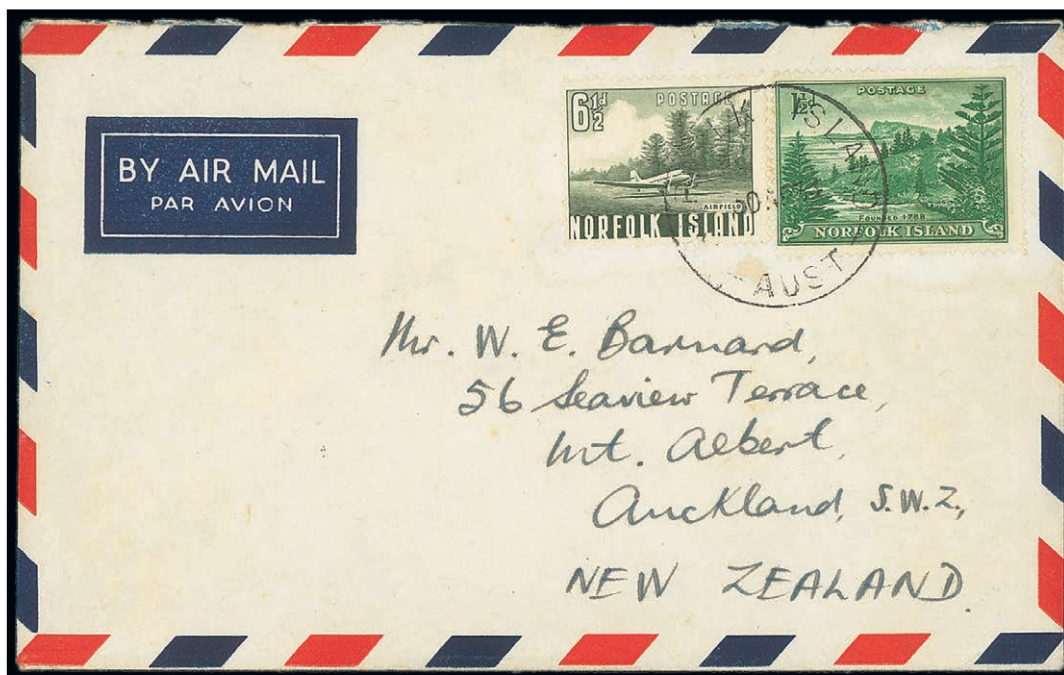 BY AIR MAIL
PAR AVION
6½d POSTAGE
AIRFIELD
NORFOLK ISLAND
POSTAGE
1½d
FOUNDED 1788
NORFOLK ISLAND
ISLAND
AUST
Mr. W. E. Barnard,
56 Seaview Terrace,
Mt. Albert,
Auckland, S.W.2,
NEW ZEALAND.